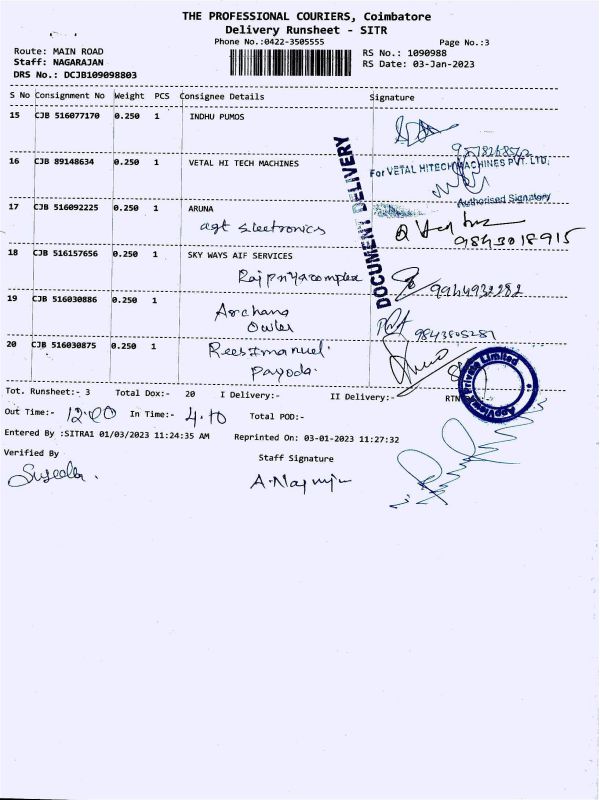 THE PROFESSIONAL COURIERS, Coimbatore
Delivery Runsheet - SITR
Phone No.:0422-3505555
Page No.:3
Route: MAIN ROAD
RS No.: 1090988
Staff: NAGARAJAN
RS Date: 03-Jan-2023
DRS No.: DCJB109098803
S No Consignment No Weight PCS Consignee Details Signature
15 CJB 516077170 0.250 1 INDHU PUMOS
16 CJB 89148634 0.250 1 VETAL HI TECH MACHINES
For VETAL HITECH MACHINES PVT. LTD.
Authorised Signatory
17 CJB 516092225 0.250 1 ARUNA
agt electronics
9843018915
18 CJB 516157656 0.250 1 SKY WAYS AIF SERVICES
complex
9944932282
19 CJB 516030886 0.250 1
Archana
9843805287
20 CJB 516030875 0.250 1
Payoda
DOCUMENT DELIVERY
Private Limited
Tot. Runsheet:- 3 Total Dox:- 20 I Delivery:- II Delivery:-
Out Time:- 12.00 In Time:- 4.10 Total POD:-
Entered By :SITRA1 01/03/2023 11:24:35 AM Reprinted On: 03-01-2023 11:27:32
Verified By
Staff Signature